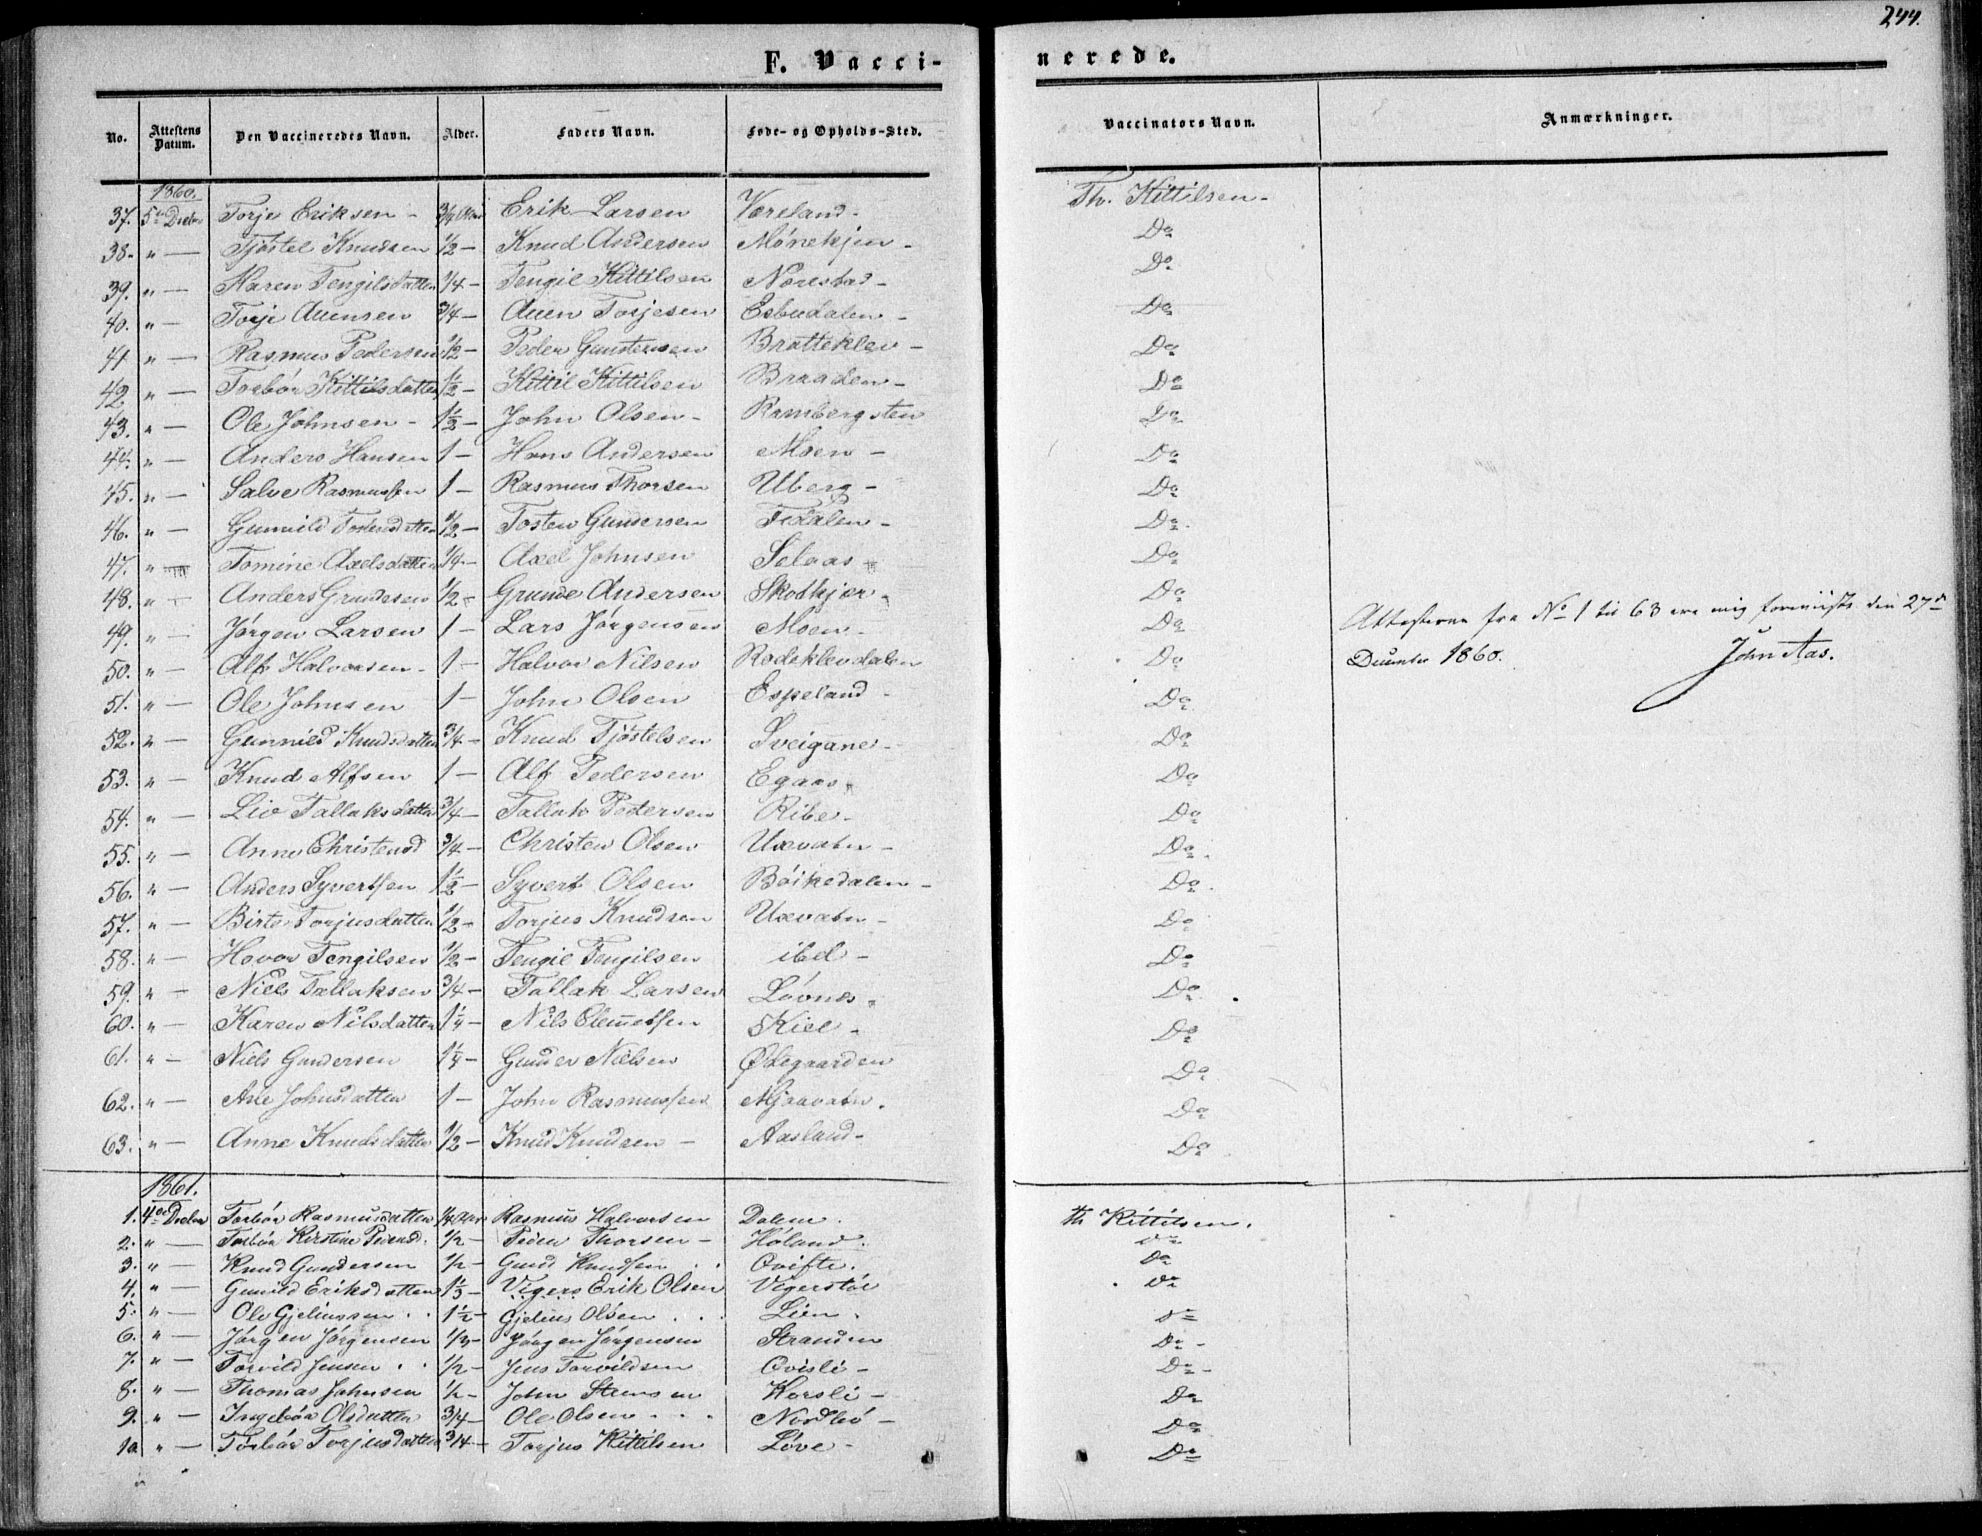 244.
F. Vacci-
nerede.
No. Attestens Datum. Den Vaccineredes Navn. Alder. Faders Navn. Føde- og Opholds-Sted. Vaccinators Navn. Anmærkninger.
1860.
37. 5te Decbr Torje Eriksen - 3/4 Aar Erik Larsen Væreland - Th. Kittilsen -
38. " — Tjøstel Knudsen 1/2 - Knud Andersen Mønekjen - Do
39. " — Karen Tengilsdatter 1/4 - Tengil Kittilsen Nørestad - Do
40. " — Torje Auensen 3/4 - Auen Torjesen Esbudalen - Do
41 " — Rasmus Pedersen 1/2 - Peder Gundersen Bratteklev - Do
42 " — Torbør Kittilsdatter 1/2 - Kittil Kittilsen Braaden - Do
43. " — Ole Johnsen - 1 1/2 - John Olsen - Rambergsten Do
44. " — Anders Hansen 1 - Hans Andersen Moen - Do
45. " — Salve Rasmussen 1 - Rasmus Thorsen Uberg - Do
46. " — Gunnild Tostensdatter 1/2 - Tosten Gundersen Fidalen - Do
47. " — Tomine Axelsdatter 1/4 - Axel Johnsen Selaas - Do
48. " — Anders Grundesen 1/2 - Grunde Andersen Skodkjær - Do
49. " — Jørgen Larsen 1 - Lars Jørgensen Moen - Do Attesterne fra No 1 til 63 ere mig foreviiste den 27de
50. " — Alf Halvorsen - 1 - Halvor Nilsen Rødeklevdalen Do December 1860. John Aas.
51. " — Ole Johnsen 1 - John Olsen Espeland - Do
52. " — Gunnild Knudsdatter 3/4 - Knud Tjøstelsen Sveigane - Do
53. " — Knud Alfsen 1 - Alf Pedersen Egaas - Do
54. " — Liv Tallaksdatter 3/4 - Tallak Pedersen Ribe - Do
55. " — Anne Christensd 3/4 - Christen Olsen Uævatn - Do
56. " — Anders Syvertsen 1 1/2 - Syvert Olsen Bøikedalen - Do
57. " — Birte Torjusdatter 1/2 - Torjus Knudsen Uævatn - Do
58. " — Hovor Tengilsen 1/2 - Tengil Tengilsen ibd - Do
59. " — Niels Tallaksen 3/4 - Tallak Larsen Løvnes - Do
60. " — Karen Nilsdatter 1 1/4 - Nils Clemetsen Kiel - Do
61. " — Niels Gundersen 1 1/4 - Gunder Nielsen Ødegaarden Do
62. " — Ane Johnsdatter 1 - John Rasmussen Mjaavatn. Do
63. " — Anne Knudsdatter 1/2 - Knud Knudsen - Aasland - Do
1861.
1. 4de Decbr Torbør Rasmusdatter 1/4 Aar Rasmus Halvorsen Dalen. Th Kittilsen.
2. " — Torbør Kirstine Pedersd. 1/2 - Peder Thorsen - Høland. Do
3. " — Knud Gundersen 1/2 - Gund Knudsen Qvifte. Do
4. " — Gunild Eriksdatter 1 1/3 - Vigers Erik Olsen Vegerstøl Do
5. " — Ole Gjeliussen 1 1/2 - Gjelius Olsen Lien. Do
6. " — Jørgen Jørgensen 1/3 - Jørgen Jørgensen Stranden Do -
7. " — Torvild Jensen 1/2 - Jens Torvildsen Qvisli - Do -
8. " — Thomas Johnsen 1/2 - John Stensen Korsli - Do
9. " — Ingebør Olsdatter 3/4 - Ole Olsen Nordbø - Do
10 " — Torbør Torjusdatter 3/4 - Torjus Kittilsen Løve - Do